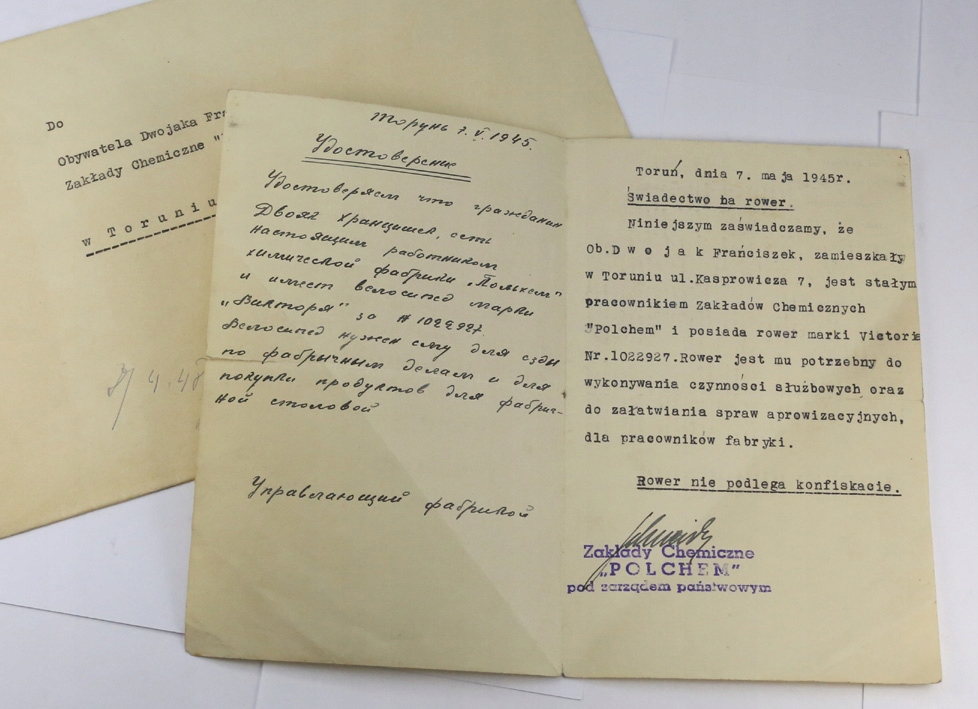 Do
Obywatela Dwojaka
Zakłady Chemiczne
w Toruniu
4.48
Торунь 7.V.1945.
Удостоверение
Удостоверяем что гражданин
Двояк Хранцишек, есть
настоящим работником
химической фабрики „Полькем"
и имеет велосипед марки
„Викторя" за № 1022927
Велосипед нужен ему для езды
по фабричным делам и для
покупки продуктов для фабрич-
ной столовой
Управляющий фабрикой
Toruń, dnia 7. maja 1945r.
Świadectwo ba rower.
Niniejszym zaświadczamy, że
Ob.D w o j a k Franciszek, zamieszkały
w Toruniu ul.Kasprowicza 7, jest stałym
pracownikiem Zakładów Chemicznych
"Polchem" i posiada rower marki Victoria
Nr.1022927.Rower jest mu potrzebny do
wykonywania czynności służbowych oraz
do załatwiania spraw aprowizacyjnych,
dla pracowników fabryki.
Rower nie podlega konfiskacie.
Zakłady Chemiczne
„POLCHEM"
pod zarządem państwowym